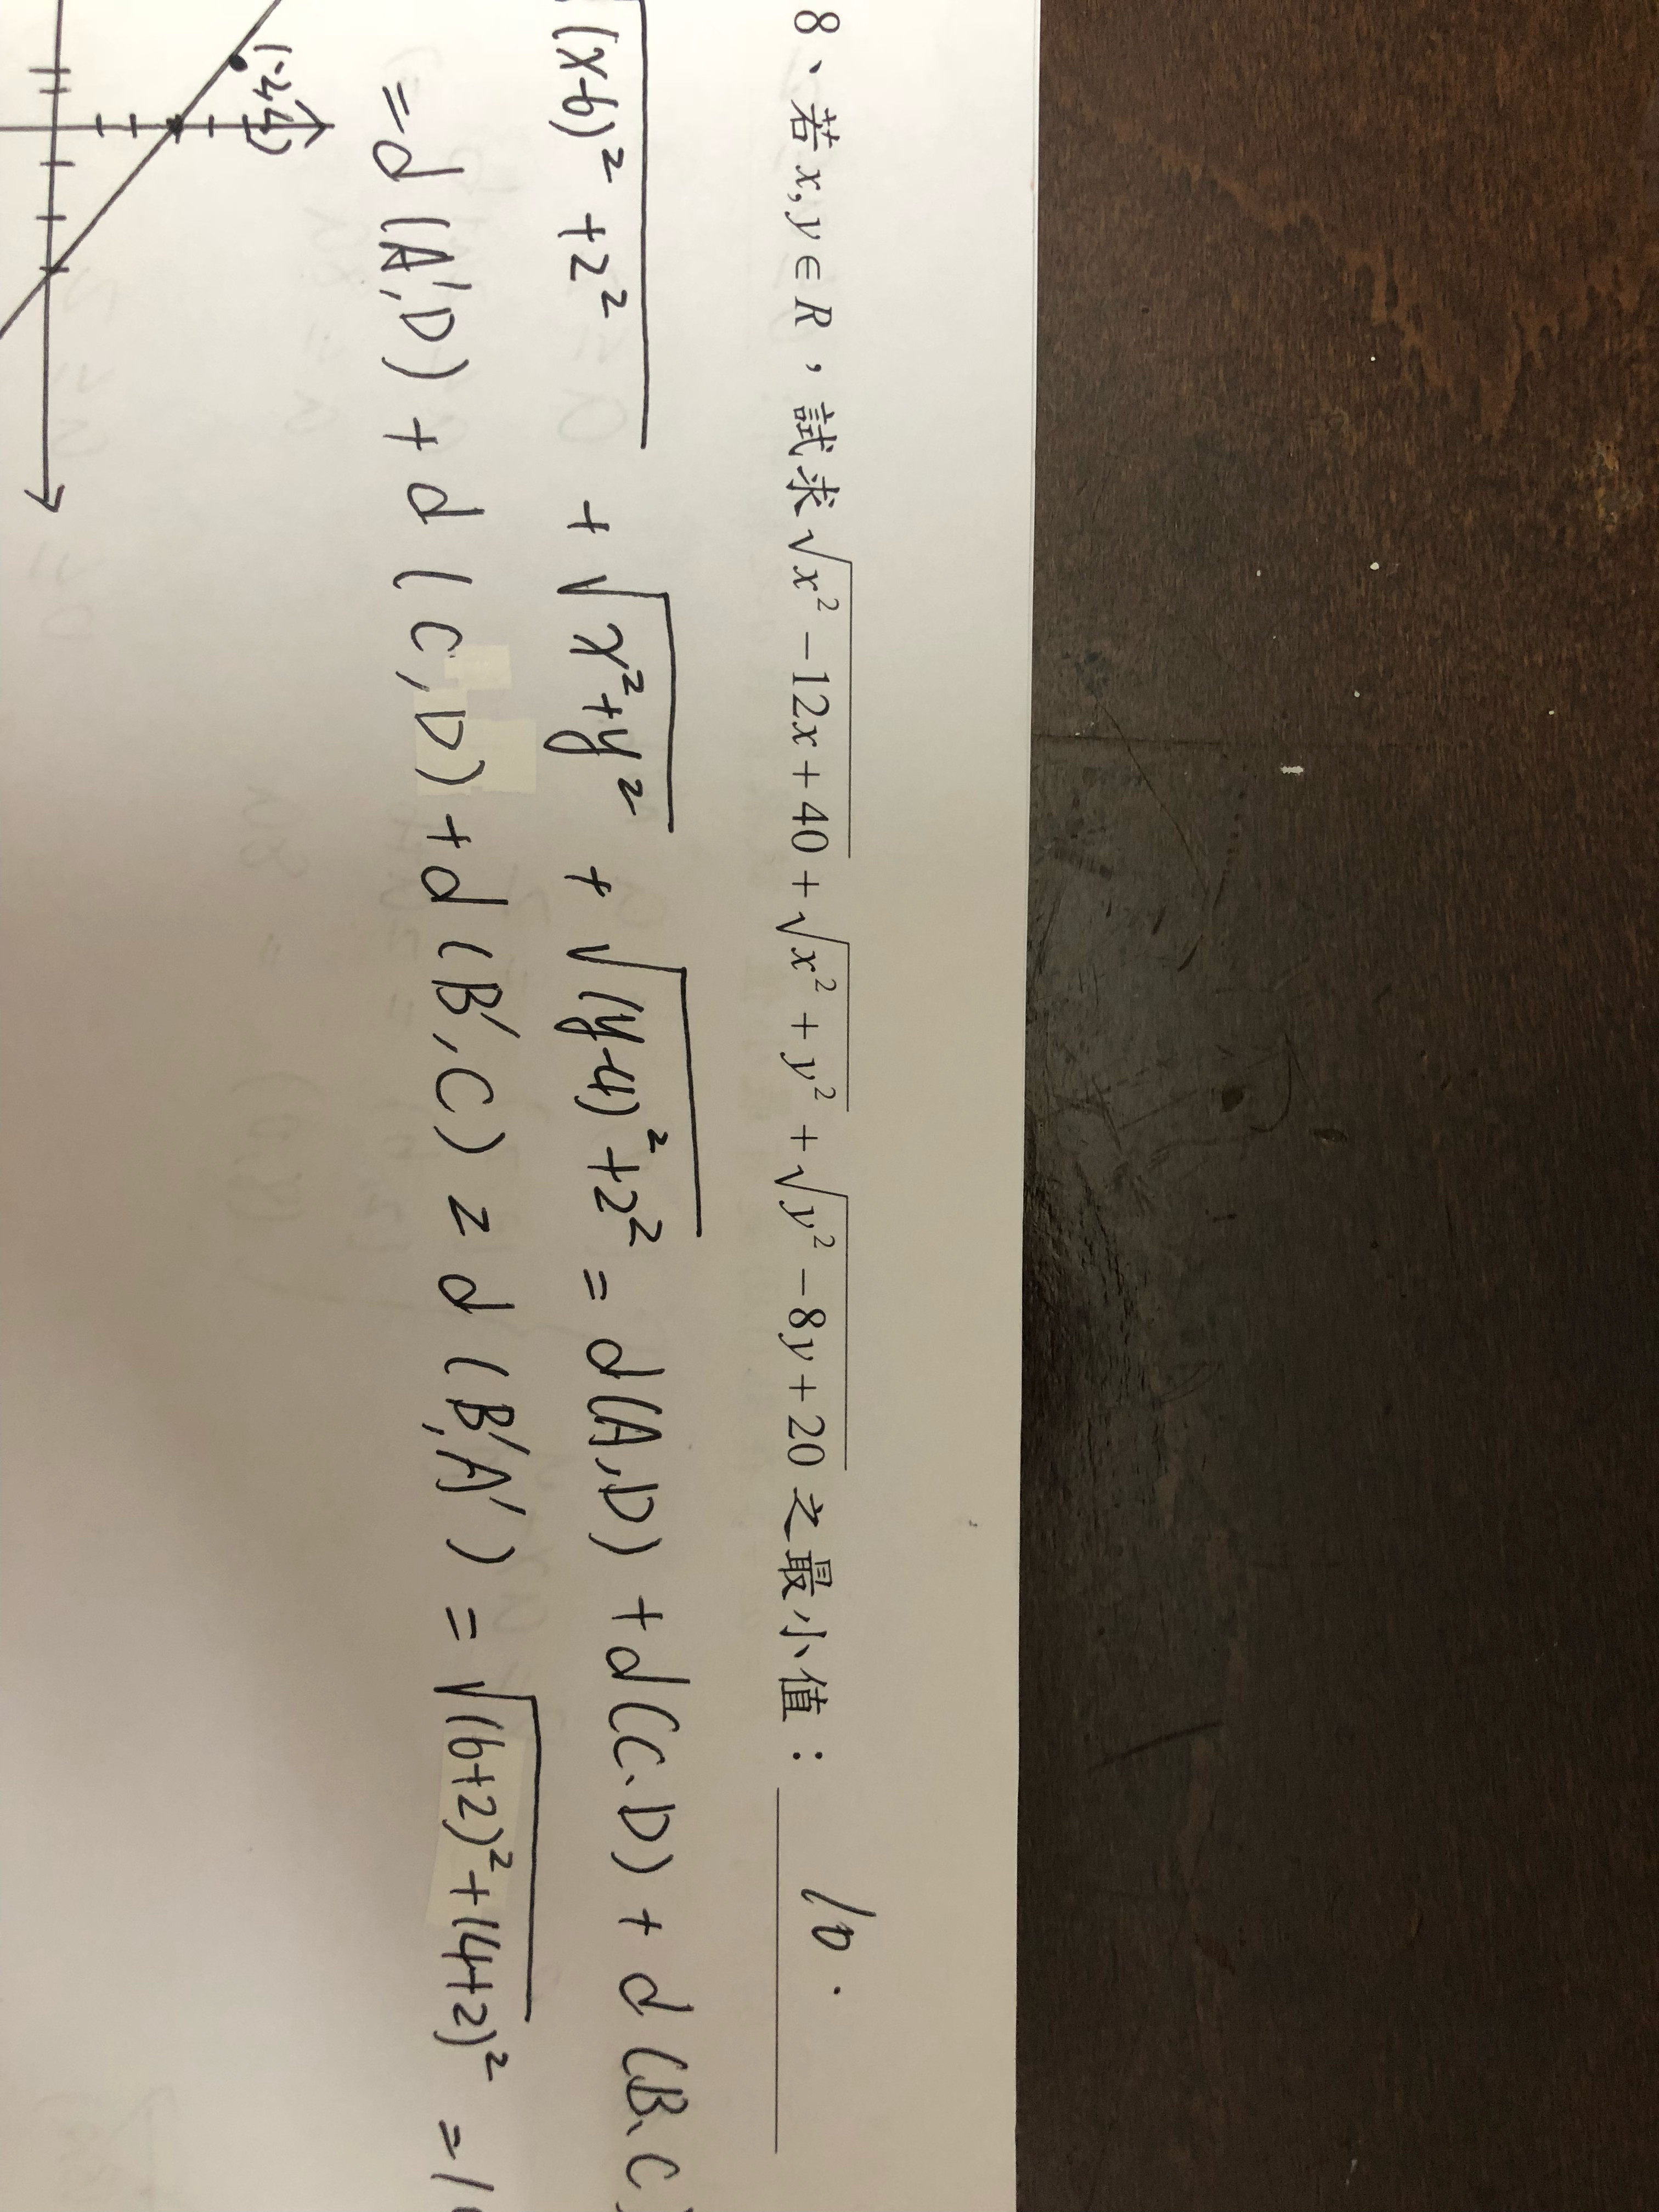 8、若 x, y ∈ R，試求 √(x² − 12x + 40) + √(x² + y²) + √(y² − 8y + 20) 之最小值：10.
√((x-6)² + 2²) + √(x²+y²) + √((y-4)²+2²) = d(A,D) + d(C,D) + d(B,C)
= d(A',D) + d(C,D) + d(B',C) ≥ d(B',A') = √((6+2)²+(4+2)²) = 1
(-2,4)